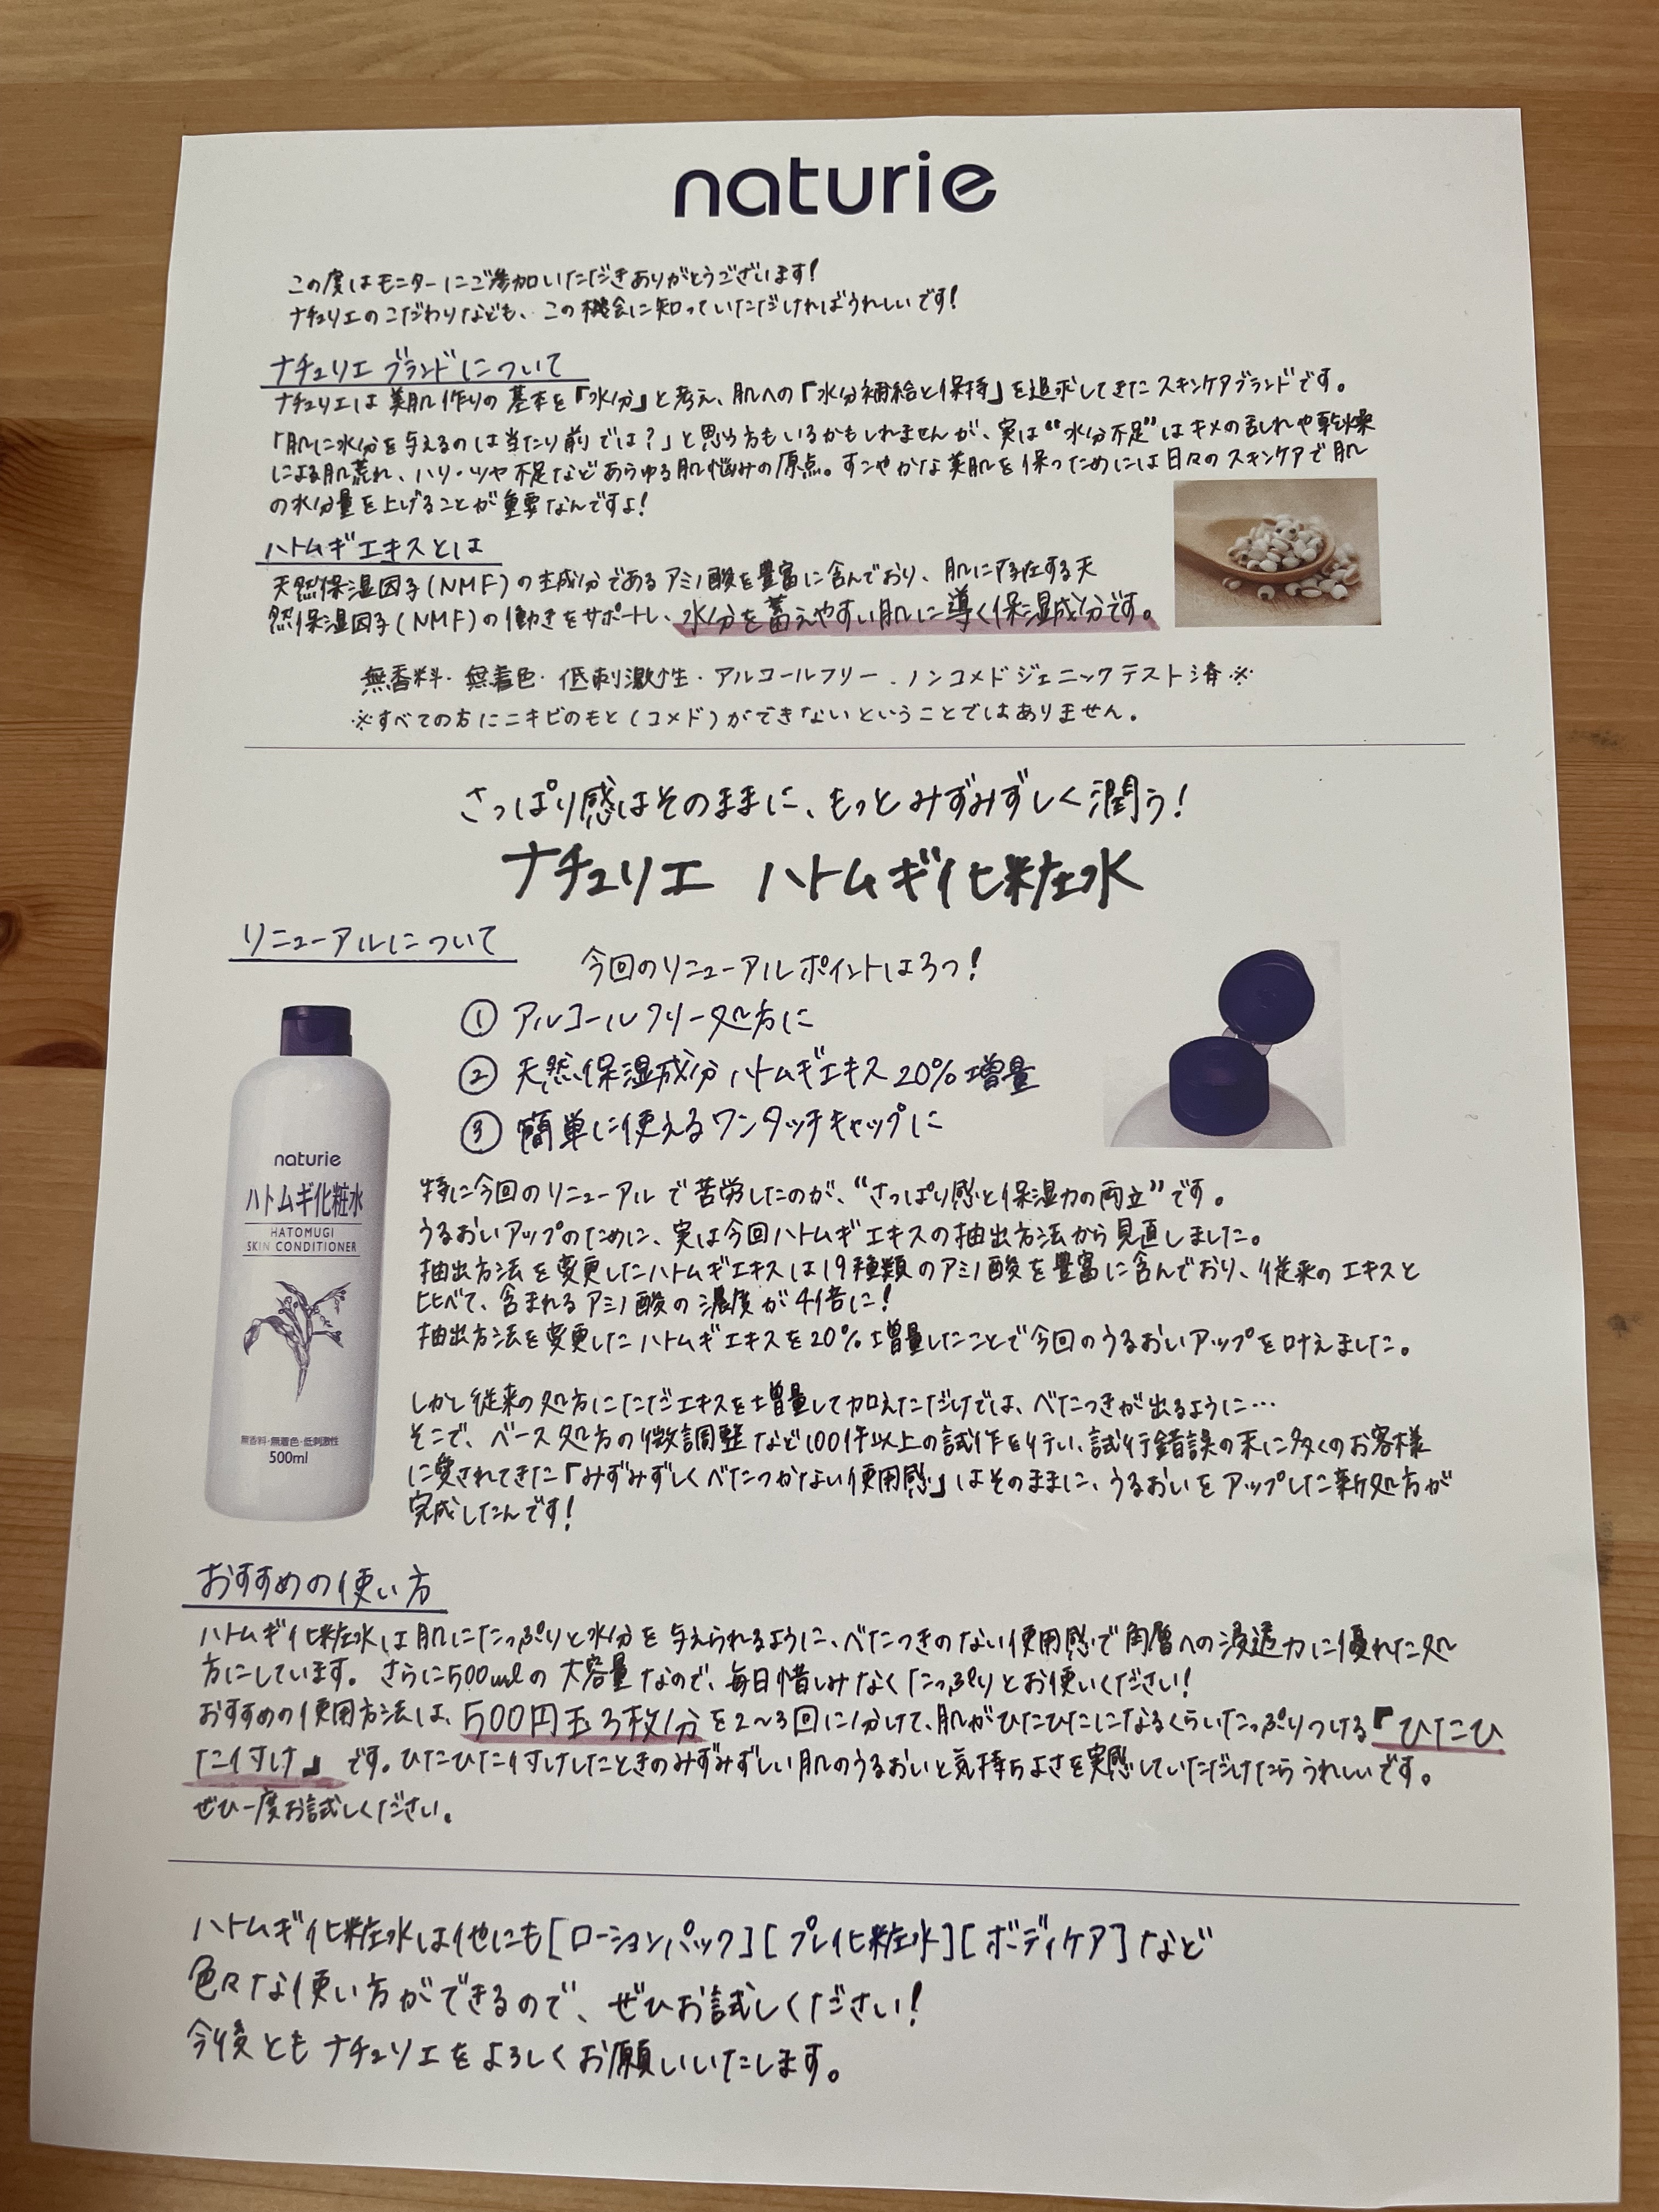 naturie
この度はモニターにご参加いただきありがとうございます!
ナチュリエのこだわりなども、この機会に知っていただければうれしいです!
ナチュリエ ブランドについて
ナチュリエは美肌作りの基本を「水分」と考え、肌への「水分補給と保持」を追求してきたスキンケアブランドです。
「肌に水分を与えるのは当たり前では?」と思う方もいるかもしれませんが、実は“水分不足”はキメの乱れや乾燥
による肌荒れ、ハリ・ツヤ不足などあらゆる肌悩みの原点。すこやかな美肌を保つためには日々のスキンケアで肌
の水分量を上げることが重要なんですよ!
ハトムギエキスとは
天然保湿因子(NMF)の主成分であるアミノ酸を豊富に含んでおり、肌に存在する天
然保湿因子(NMF)の働きをサポートし、水分を蓄えやすい肌に導く保湿成分です。
無香料・無着色・低刺激性・アルコールフリー・ノンコメドジェニックテスト済※
※すべての方にニキビのもと(コメド)ができないということではありません。
さっぱり感はそのままに、もっとみずみずしく潤う!
ナチュリエ ハトムギ化粧水
リニューアルについて
今回のリニューアルポイントは3つ!
① アルコールフリー処方に
② 天然保湿成分ハトムギエキス20%増量
③ 簡単に使えるワンタッチキャップに
naturie
ハトムギ化粧水
HATOMUGI
SKIN CONDITIONER
無香料・無着色・低刺激性
500ml
特に今回のリニューアルで苦労したのが、“さっぱり感と保湿力の両立”です。
うるおいアップのために、実は今回ハトムギエキスの抽出方法から見直しました。
抽出方法を変更したハトムギエキスは19種類のアミノ酸を豊富に含んでおり、従来のエキスと
比べて、含まれるアミノ酸の濃度が4倍に!
抽出方法を変更したハトムギエキスを20%増量したことで今回のうるおいアップを叶えました。
しかし従来の処方にただエキスを増量して加えただけでは、べたつきが出るように…
そこで、ベース処方の微調整など100件以上の試作を行い、試行錯誤の末に多くのお客様
に愛されてきた「みずみずしくべたつかない使用感」はそのままに、うるおいをアップした新処方が
完成したんです!
おすすめの使い方
ハトムギ化粧水は肌にたっぷりと水分を与えられるように、べたつきのない使用感で角層への浸透力に優れた処
方にしています。さらに500mlの大容量なので、毎日惜しみなくたっぷりとお使いください!
おすすめの使用方法は、500円玉3枚分を2~3回に分けて、肌がひたひたになるくらいたっぷりつける『ひたひ
た付け』です。ひたひた付けしたときのみずみずしい肌のうるおいと気持ちよさを実感していただけたらうれしいです。
ぜひ一度お試しください。
ハトムギ化粧水は他にも[ローションパック][プレ化粧水][ボディケア]など
色々な使い方ができるので、ぜひお試しください!
今後ともナチュリエをよろしくお願いいたします。